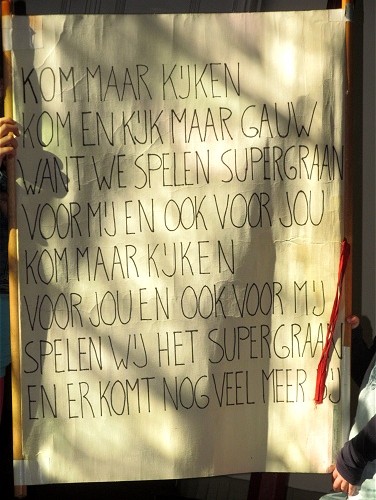 KOM MAAR KIJKEN
KOM EN KIJK MAAR GAUW
WANT WE SPELEN SUPERGRAAN
VOOR MIJ EN OOK VOOR JOU
KOM MAAR KIJKEN
VOOR JOU EN OOK VOOR MIJ
SPELEN WIJ HET SUPERGRAAN
EN ER KOMT NOG VEEL MEER BIJ